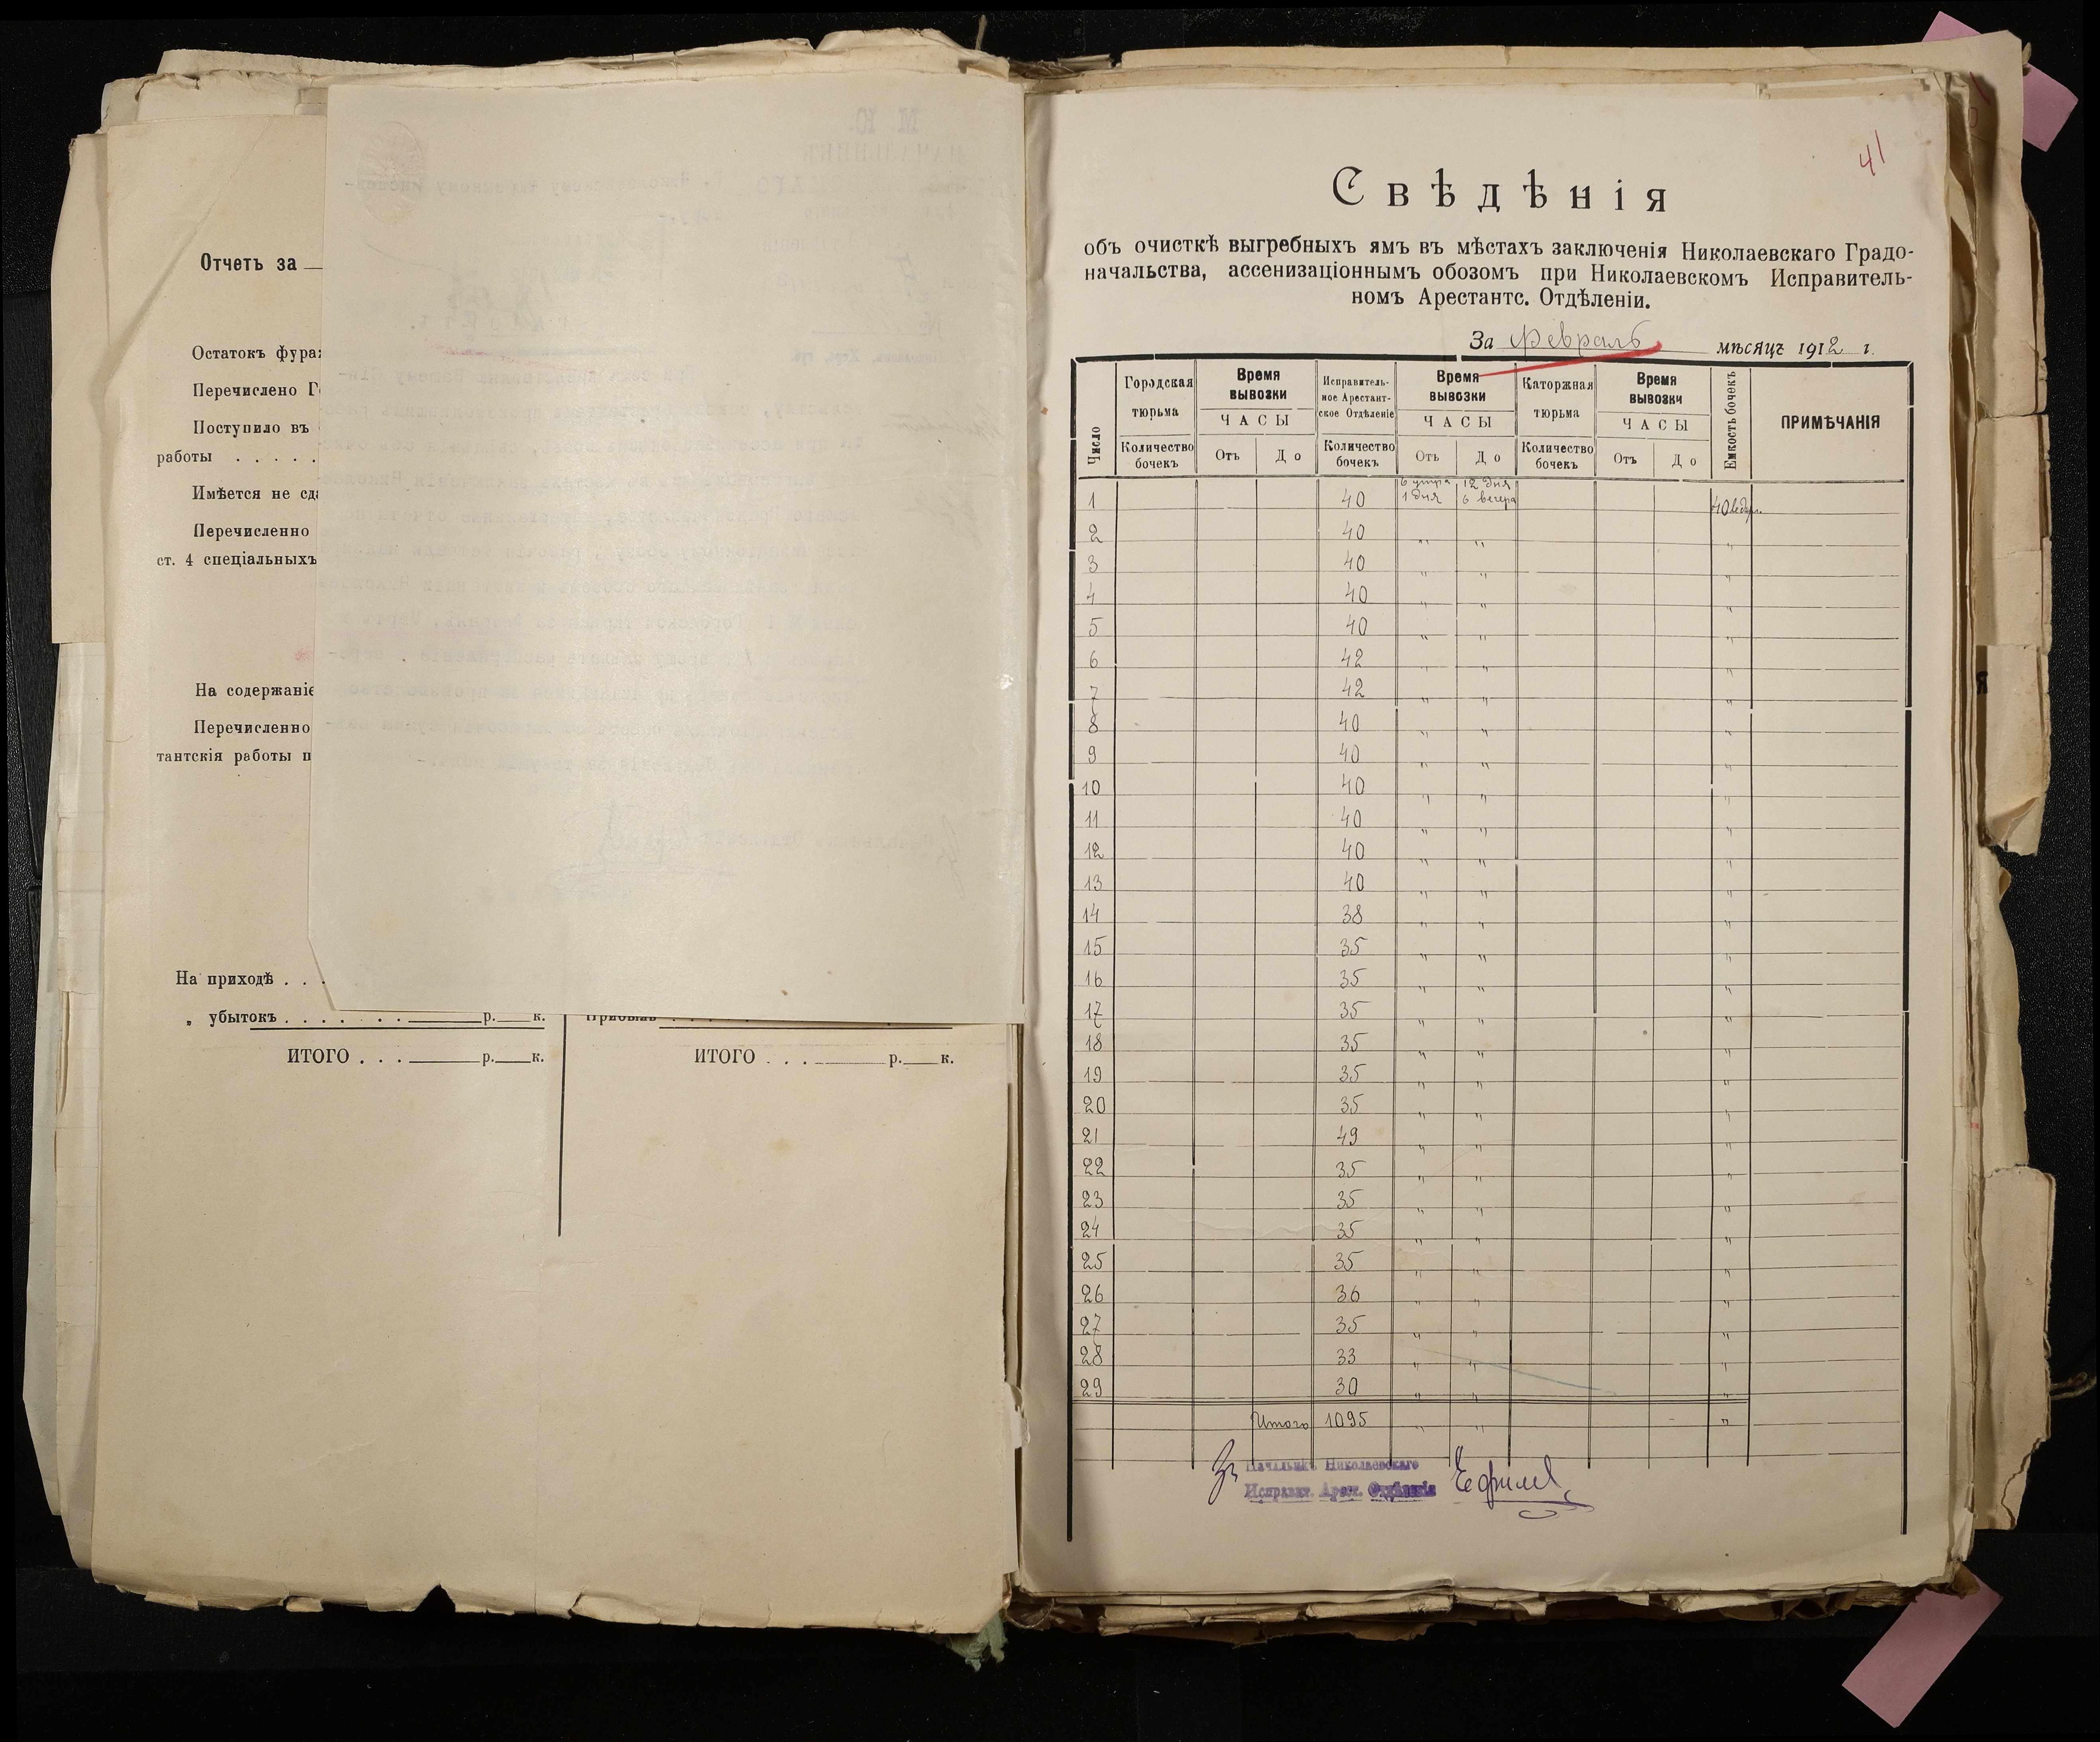 Отчетъ за
Остатокъ фура
Перечислено Г
Поступило въ
работы . . . . .
Имѣется не сд
Перечисленно
ст. 4 спеціальныхъ
На содержаніе
Перечисленно
тантскія работы п
На приходѣ . . .
„ убытокъ . . . . . . . р. к.
ИТОГО . . . р. к. ИТОГО . . . р. к.
41
Свѣдѣнія
объ очисткѣ выгребныхъ ямъ въ мѣстахъ заключенія Николаевскаго Градо-
начальства, ассенизаціоннымъ обозомъ при Николаевскомъ Исправитель-
номъ Арестантс. Отдѣленіи.
За февраль мѣсяцъ 1912 г.
Число
Городская тюрьма
Количество бочекъ
Время вывозки
ЧАСЫ
Отъ До
Исправитель-
ное Арестант-
ское Отдѣленіе
Количество бочекъ
Время вывозки
ЧАСЫ
Отъ До
Каторжная тюрьма
Количество бочекъ
Время вывозки
ЧАСЫ
Отъ До
Емкость бочекъ
ПРИМѢЧАНІЯ
6 утра 12 дня
1 40 1 дня 6 вечера 40 ведр.
2 40 „ „ „
3 40 „ „ „
4 40 „ „ „
5 40 „ „ „
6 42 „ „ „
7 42 „ „ „
8 40 „ „ „
9 40 „ „ „
10 40 „ „ „
11 40 „ „ „
12 40 „ „ „
13 40 „ „ „
14 38 „ „ „
15 35 „ „ „
16 35 „ „ „
17 35 „ „ „
18 35 „ „ „
19 35 „ „ „
20 35 „ „ „
21 49 „ „ „
22 35 „ „ „
23 35 „ „ „
24 35 „ „ „
25 35 „ „ „
26 36 „ „ „
27 35 „ „ „
28 33 „ „ „
29 30 „ „ „
Итого 1095 „ „ „
За Начальникъ Николаевскаго
Исправит. Арест. Отдѣленія